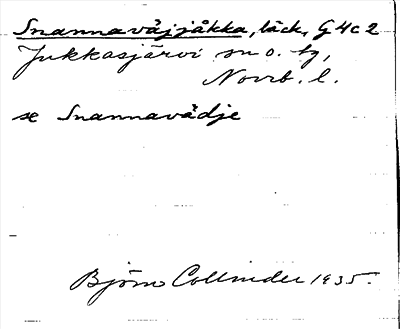 Snannavåjjåkka, bäck, G4c2
Jukkasjärvi sn o. tg,
Norrb. l.
se Snannavådje
Björn Collinder 1935.